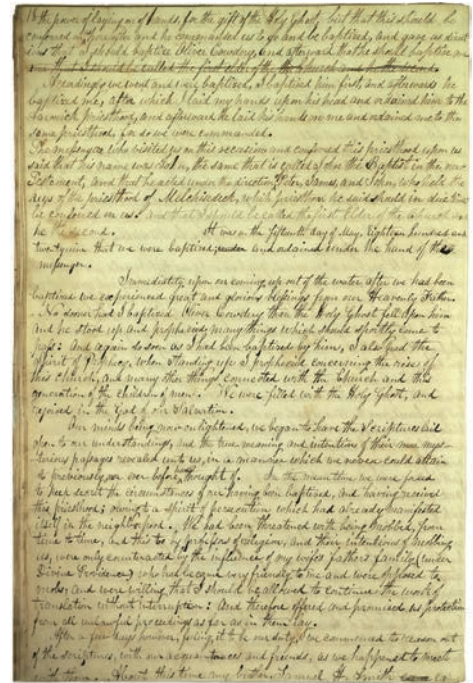 18 the power of laying on of hands, for the gift of the Holy Ghost, but that this should be
conferred on us hereafter and he commanded us to go and be baptized, and gave us direct
ions that I should baptize Oliver Cowdery, and afterward that he should baptize me
and that I should be called the first elder of the Church and he the second.
Accordingly we went and were baptized, I baptized him first, and afterwards he
baptized me, after which I laid my hands upon his head and ordained him to the
Aaronick priesthood, and afterward he laid his hands on me and ordained me to the
same priesthood, for so we were commanded.
The messenger who visited us on this occasion and conferred this priesthood upon us
said that his name was John, the same that is called John the Baptist in the new
Testament, and that he acted under the direction Peter, James, and John, who held the
keys of the priesthood of Melchisedeck, which priesthood he said should in due time
be conferred on us. and that I should be called the first Elder of the Church and
he the second. It was on the fifteenth day of May, Eighteen hundred and
twenty nine that we were baptized; under and ordained under the hand of the
messenger.
Immediately upon our coming up out of the water after we had been
baptized we experienced great and glorious blessings from our Heavenly Father.
No sooner had I baptized Oliver Cowdery than the Holy Ghost fell upon him
and he stood up and prophecied many things which should shortly come to
pass: And again so soon as I had been baptized by him, I also had the
Spirit of Prophecy, when standing up I prophecied concerning the rise of
this church, and many other things connected with the Church and this
generation of the children of men. We were filled with the Holy Ghost, and
rejoiced in the God of our Salvation.
Our minds being now enlightened, we began to have the Scriptures laid
open to our understandings, and the true meaning and intention of their more myst-
erious passages revealed unto us, in a manner which we never could attain
to previously, nor ever before had thought of. In the meantime we were forced
to keep secret the circumstances of our having been baptized, and having received
this priesthood; owing to a spirit of persecution which had already manifested
itself in the neighborhood. We had been threatened with being mobbed, from
time to time, and this too by professors of religion, and their intentions of mobbing
us, were only counteracted by the influence of my wife's fathers family (under
Divine Providence) who had became very friendly to me and were opposed to
mobs; and were willing that I should be allowed to continue the work of
translation without interruption: And therefore offered and promised us protection
from all unlawful proceedings as far as in them lay.
After a few days however, feeling it to be our duty, we commenced to reason out
of the scriptures, with our acquaintances and friends, as we happened to meet
with them. About this time my brother Samuel H. Smith came